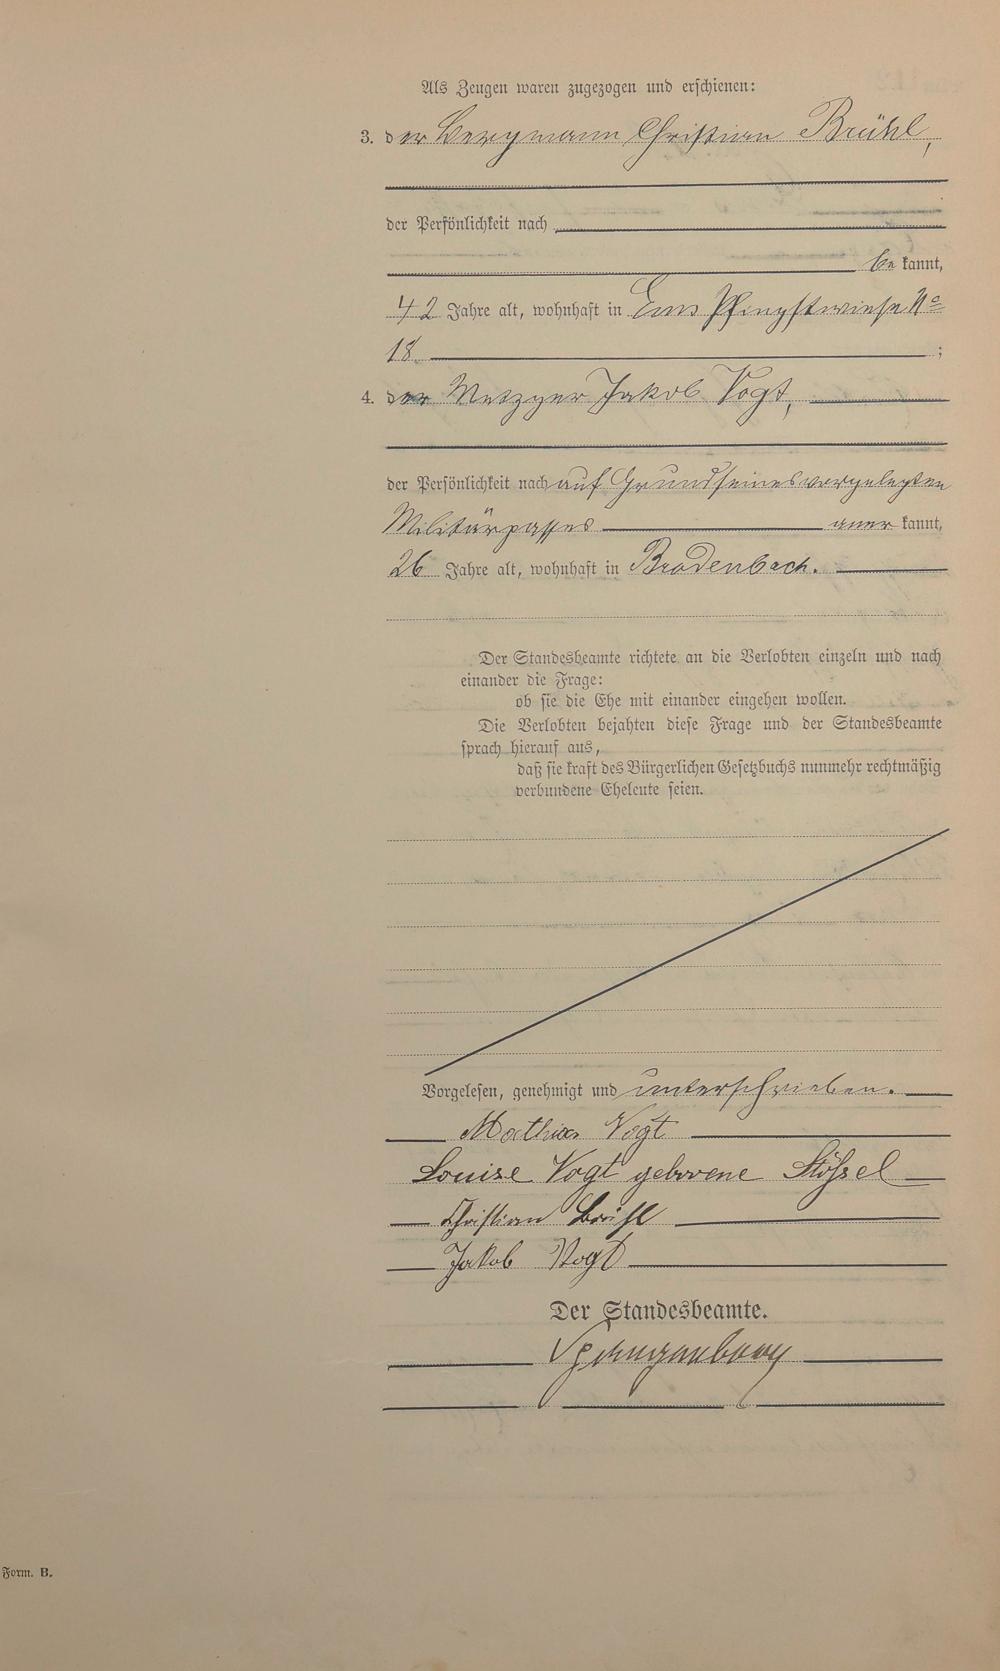 Als Zeugen waren zugezogen und erschienen:
3. der Bergmann Christian Brühl,
der Persönlichkeit nach
be kannt,
42 Jahre alt, wohnhaft in Ems Pfingstwiese No
18 ;
4. der Metzger Jakob Vogt,
der Persönlichkeit nach auf Grund seines vorgelegten
Militärpasses aner kannt,
26 Jahre alt, wohnhaft in Brodenbach.
Der Standesbeamte richtete an die Verlobten einzeln und nach
einander die Frage:
ob sie die Ehe mit einander eingehen wollen.
Die Verlobten bejahten diese Frage und der Standesbeamte
sprach hierauf aus,
daß sie kraft des Bürgerlichen Gesetzbuchs nunmehr rechtmäßig
verbundene Eheleute seien.
Vorgelesen, genehmigt und unterschrieben.
Mathias Vogt
Louise Vogt geborene Stößel
Christian Brühl
Jakob Vogt
Der Standesbeamte.
Form. B.